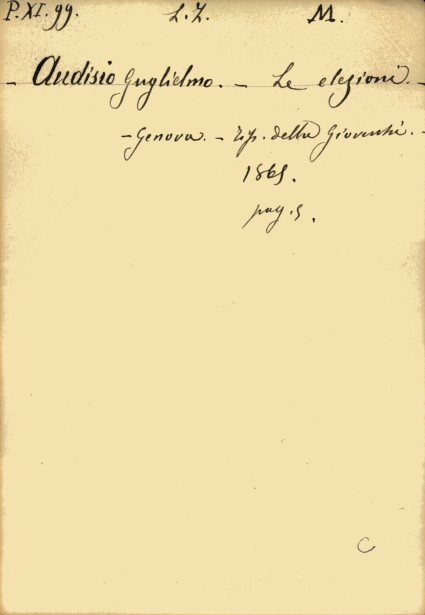 P.XI.99. L.Z. M.
- Audisio Guglielmo. - Le elezioni. -
- Genova. - Tip. della Gioventù. -
1865.
pag. 5.
C